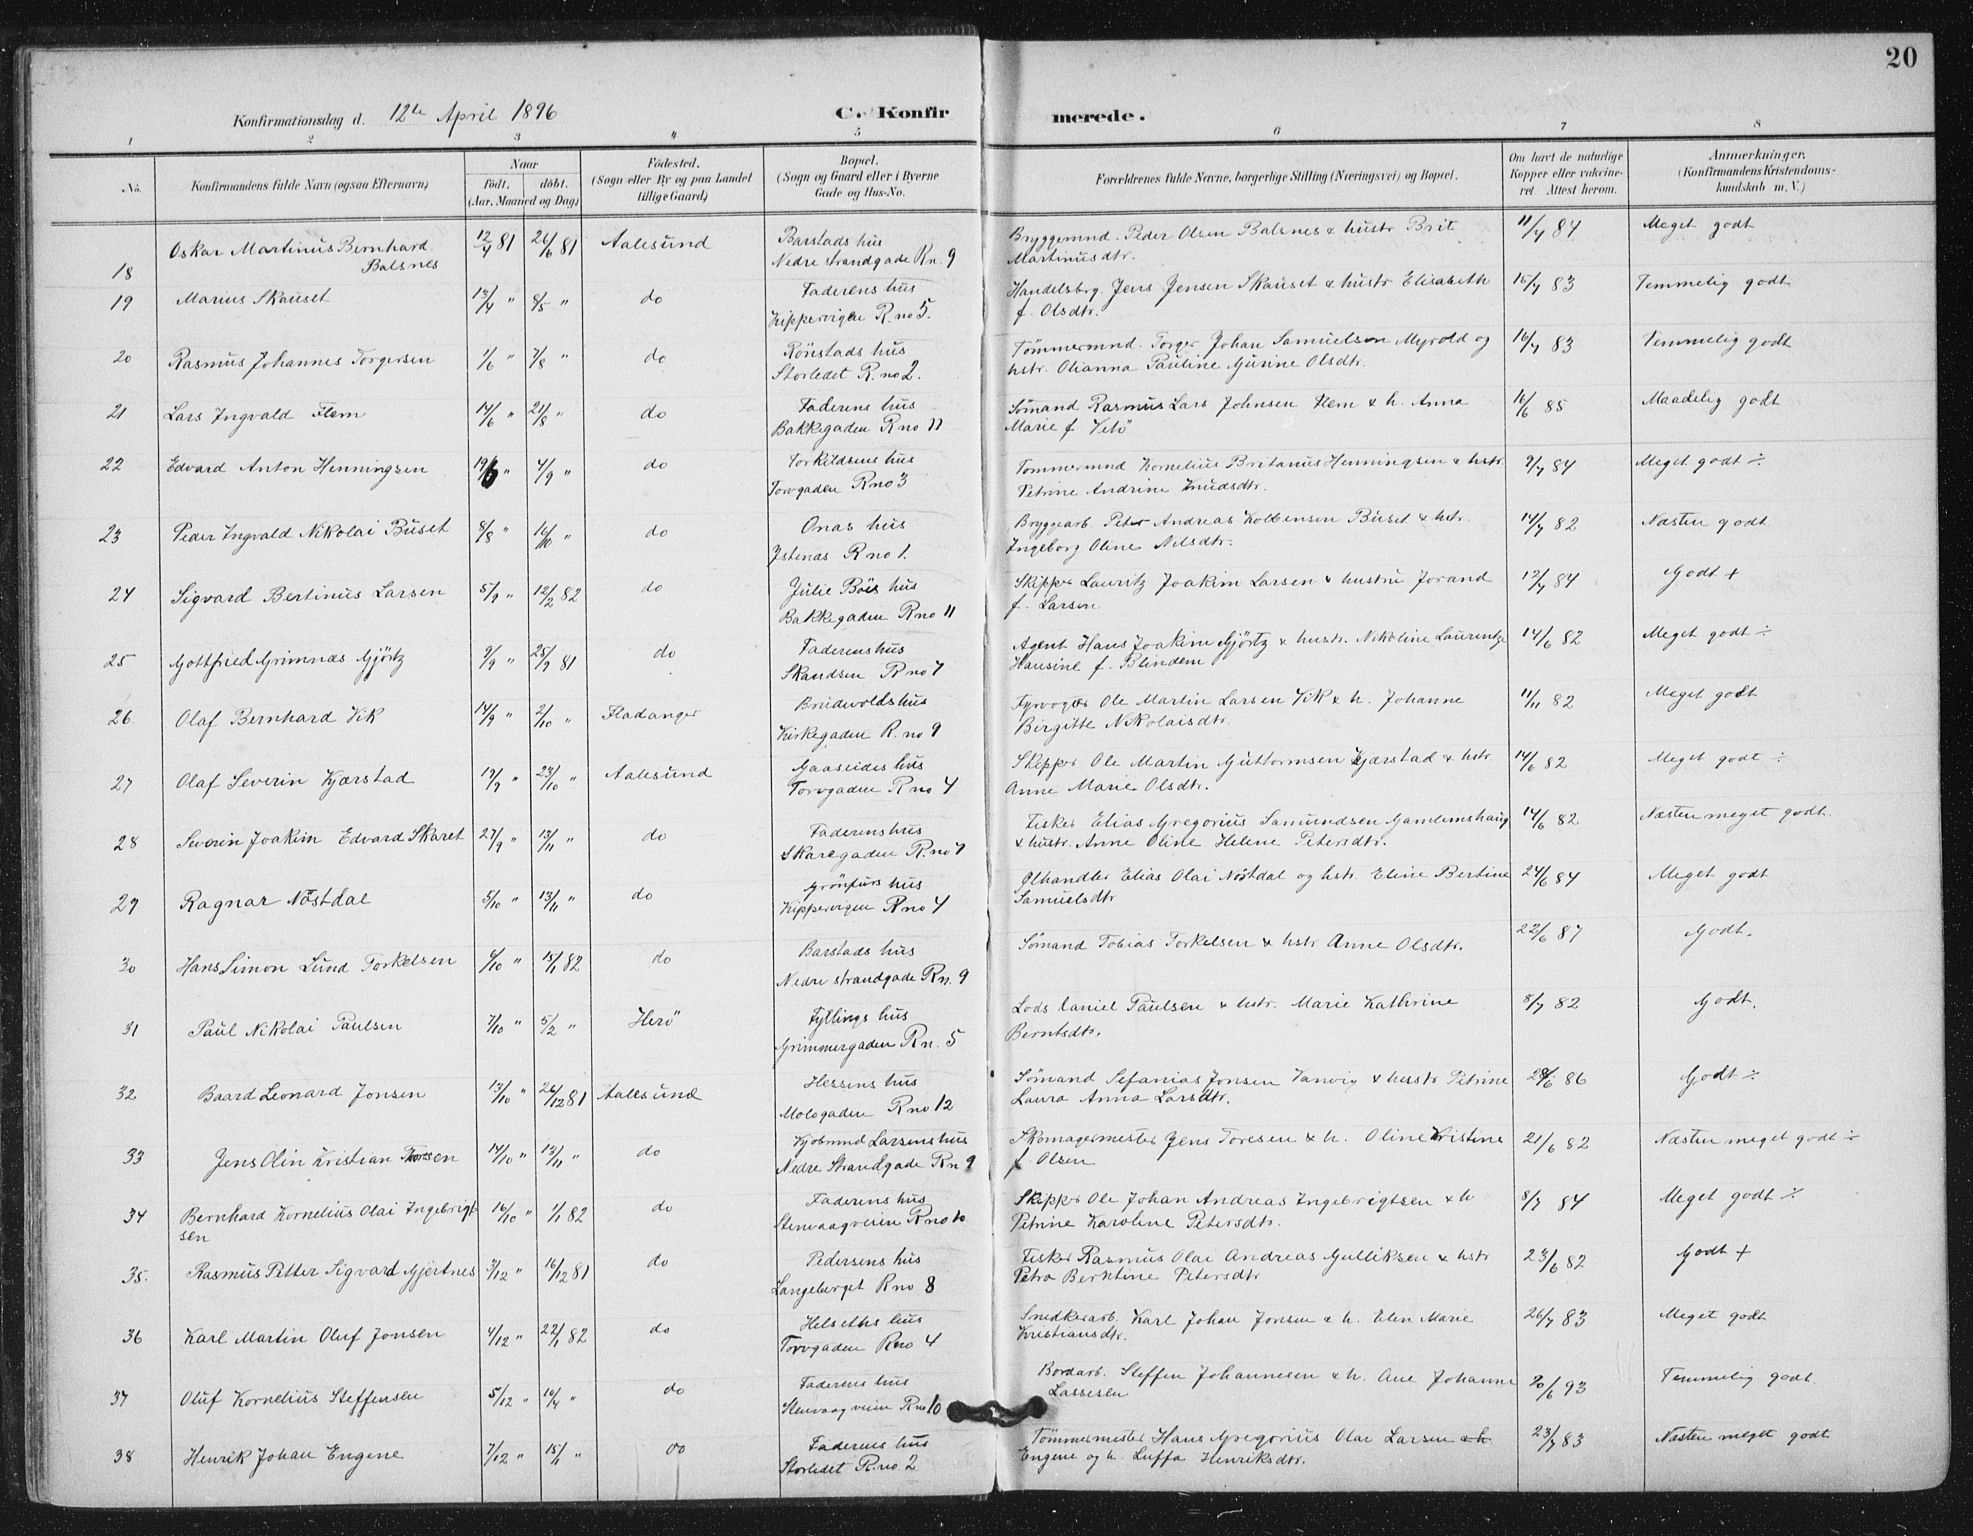 20
Konfirmationsdag d. 12te April 1896
C. Konfir
merede.
1 2 3 4 5 6 7 8
No.
Konfirmandens fulde Navn (ogsaa Efternavn)
Naar
født. døbt.
(Aar, Maaned og Dag)
Fødested.
(Sogn eller By og paa Landet
tillige Gaard)
Bopæl.
(Sogn og Gaard eller i Byerne
Gade og Hus-No.
Forældrenes fulde Navne, borgerlige Stilling (Næringsvei) og Bopæl.
Om havt de naturlige
Kopper eller vakcine-
ret Attest herom.
Anmærkninger.
(Konfirmandens Kristendoms-
kundskab m. V.)
18 Oskar Martinus Bernhard 12/4 81 26/6 81 Aalesund Barstads hus Bryggemnd. Peder Olsen Balsnes & hustr Brit 11/7 84 Meget godt
Balsnes Nedre strandgade Rn. 9 Martinusdtr.
19 Marius Skauset 13/4 " 8/5 " do Faderens hus Handelsbrg. Jens Jensen Skauset & hustr Elisabeth 15/7 83 Temmelig godt
Kippervigen R. no 5. f. Olsdtr.
20 Rasmus Johannes Torgersen 1/6 " 7/8 " do Rönstads hus Tømmermnd. Torger Johan Samuelsen Myrold og 16/7 83 Temmelig godt
Storledet R. no 2. hstr. Olianna Pauline Gurine Olsdtr.
21 Lars Ingvald Flem 14/6 " 21/8 " do Faderens hus Sømand Rasmus Lars Johnsen Flem & h. Anna 16/6 85 Maadelig godt
Bakkegaden R no 11 Marie f
22 Edvard Anton Henningsen 19/6 " 4/9 " do Torkildsens hus Tømmermnd Kornelius Britanus Henningsen & hstr. 9/7 84 Meget godt ÷
Torvgaden R no 3 Petrine Andrine Knudsdtr.
23 Peder Ingvald Nikolai Buset 8/8 " 16/10 " do Onas hus Bryggearb. Peter Andreas Kolbensen Buset & hstr. 14/7 82 Næsten godt
R no 1. Ingeborg Oline Nilsdtr.
24 Sigvard Bertinus Larsen 5/9 " 12/2 82 do Julie Böes hus Skipper Lauritz Joakim Larsen & hustru Jorand 12/7 84 Godt +
Bakkegaden R no 11 f. Larsen
25 Gottfried Grimnæs Gjörtz 9/9 " 25/9 81 do Faderens hus Agent Hans Joakim Gjörtz & hustr. Nikoline Laurentze 14/6 82 Meget godt ÷
Skandsen R no 7 Hansine f. Blindem
26 Olaf Bernhard Vik 14/9 " 2/10 " Fladanger hus Fyrvogter Ole Martin Larsen Vik & h. Johanne 11/11 82 Meget godt
Kirkegaden R. no 9 Birgitte Nikolaisdtr.
27 Olaf Severin Kjærstad 19/9 " 23/10 " Aalesund Gaaseides hus Skipper Ole Martin Guttormsen Kjærstad & hstr. 14/6 82 Meget godt ÷
Torvgaden R no 4 Anne Marie Olsdtr.
28 Severin Joakim Edvard Skaret 27/9 " 13/11 " do Faderens hus Fisker Elias Gregorius Samundsen Gamlemshaug 14/6 82 Næsten meget godt.
Skaregaden R. no 7 & hustr. Anne Oline Helene Petersdtr.
29 Ragnar Nöstdal 5/10 " 13/11 " do hus Ølhandler Elias Olai Nöstdal og hstr. Eline Bertine 24/6 84 Meget godt
Kippervigen R no 4 Samuelsdtr
30 Hans Simon Lund Torkelsen 6/10 " 15/1 82 do Barstads hus Sømand Tobias Torkelsen & hstr Anne Olsdtr. 22/6 87 Godt.
Nedre strandgade Rn. 9
31 Paul Nikolai Paulsen 7/10 " 5/2 " Herö Fyllings hus Lods Daniel Paulsen & hstr. Marie Kathrine 8/7 82 Godt.
Grimmergaden Rn. 5 Berntsdtr.
32 Baard Leonard Jonsen 13/10 " 26/12 81 Aalesund Hessens hus Sømand Sefanias Jonsen Vanvig & hustr Petrine 28/6 86 Godt ÷
Mologaden R no 12 Laura Anna Larsdtr.
33 Jens Olin Kristian Thoresen 14/10 " 13/11 " do Kjøbmnd Larsens hus Skomagermester Jens Toresen & h. Oline Kristine 21/6 82 Næsten meget godt ÷
Nedre Strandgade Rn 9 f. Olsen
34 Bernhard Kornelius Olai Ingebrigt- 16/10 " 1/1 82 do Faderens hus Skipper Ole Johan Andreas Ingebrigtsen & h 8/7 84 Meget godt ÷
sen Stenvaagveien R no 10 Petrine Karoline Petersdtr.
35. Rasmus Petter Sigvard Gjertnes 3/12 " 16/12 81 do Pedersens hus Fisker Rasmus Olai Andreas Gulliksen & hstr 23/6 82 Godt +
Langeberget R no 8 Petra Berntine Petersdtr
36 Karl Martin Oluf Jonsen 4/12 " 22/1 82 do Helseths hus Snedkerarb. Karl Johan Jonsen & h. Elen Marie 26/7 83 Meget godt
Torvgaden R no 4 Kristiansdtr.
37 Oluf Kornelius Steffensen 5/12 " 10/4 " do Faderens hus Bordarb. Steffen Johannesen & h. Ane Johanne 20/6 93 Temmelig godt.
Stenvaagveien R no 10 Lassesen
38 Henrik Johan Engene 7/12 " 15/1 " do Faderens hus Tømmermester Hans Gregorius Olai Larsen & h 23/7 83 Næsten meget godt
Storledet R. no 2 Engene og h. Luffa Henriksdtr.